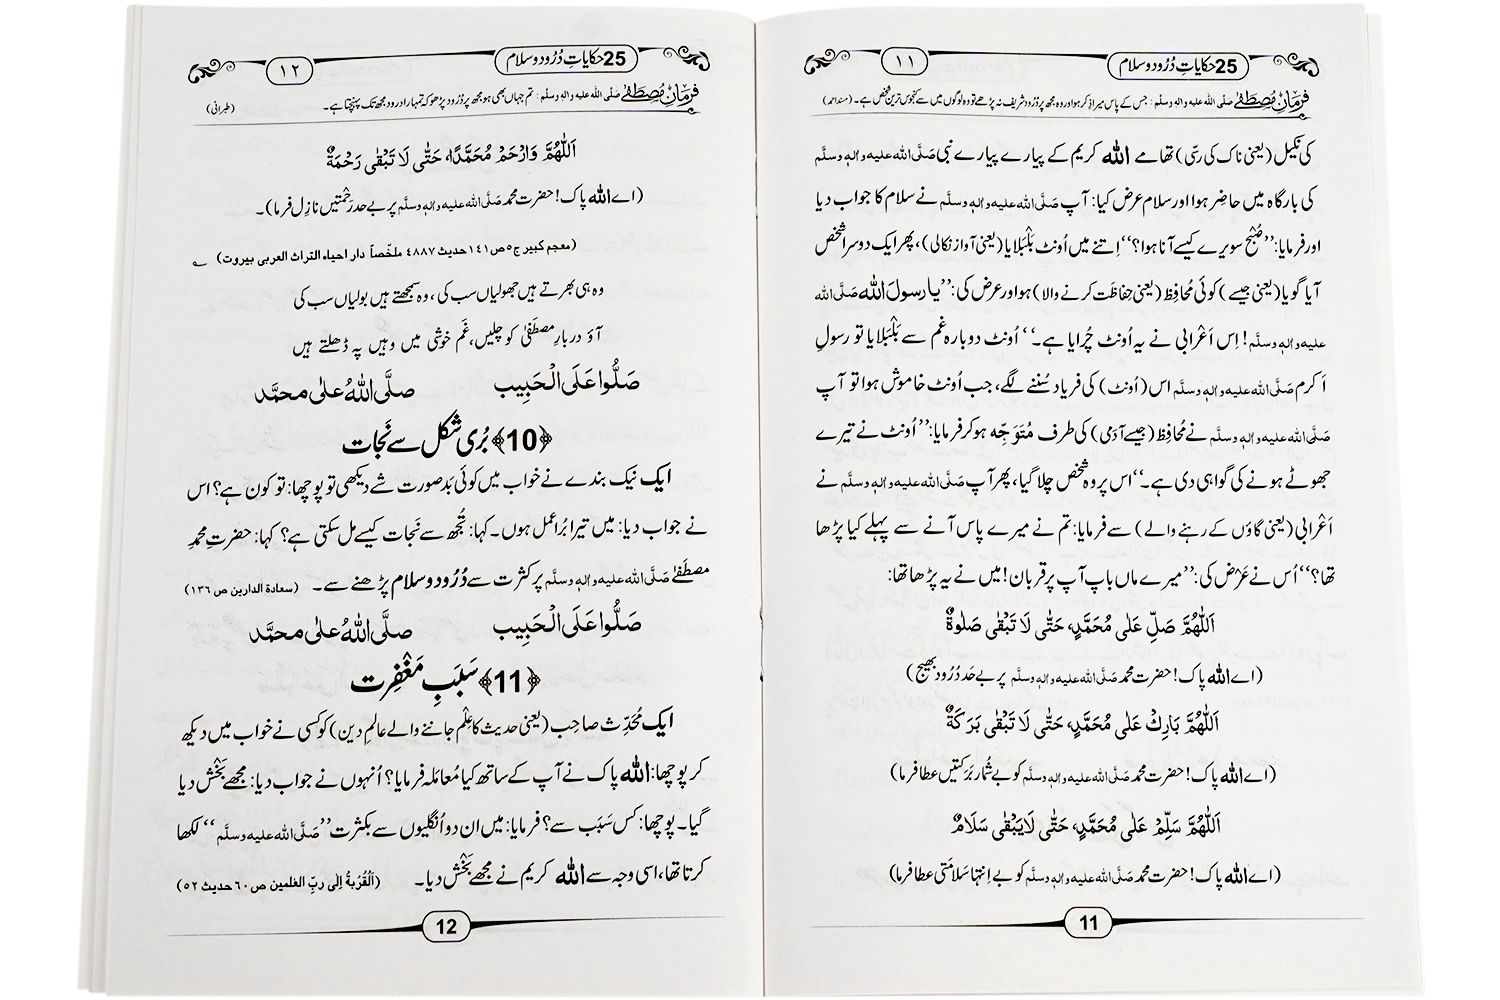 25 حکایاتِ دُرُود و سلام
١١
فرمانِ مُصطَفٰے صَلَّی اللہ علیہ واٰلہٖ وسلَّم: جس کے پاس میرا ذکر ہوا ور وہ مجھ پر دُرُود شریف نہ پڑھے تو وہ لوگوں میں سے کنجوس ترین شخص ہے۔ (مسند احمد)
کی نکیل (یعنی ناک کی رسّی) تھامے اللہ کریم کے پیارے پیارے نبی صَلَّی اللہ علیہ واٰلہٖ وسلَّم
کی بارگاہ میں حاضِر ہوا اور سلام عرض کیا: آپ صَلَّی اللہ علیہ واٰلہٖ وسلَّم نے سلام کا جواب دیا
اور فرمایا: ’’صُبْح سویرے کیسے آنا ہوا؟‘‘ اِتنے میں اُونٹ بَلْبَلایا (یعنی آواز نکالی)، پھر ایک دوسرا شخص
آیا گویا (یعنی جیسے) کوئی مُحافِظ (یعنی حفاظت کرنے والا) ہو اور عرض کی: ’’یا رسولَ اللہ صَلَّی اللہ
علیہ واٰلہٖ وسلَّم! اِس اَعْرابی نے یہ اُونٹ چُرایا ہے۔‘‘ اُونٹ دوبارہ غم سے بَلْبَلایا تو رسولِ
اَکرم صَلَّی اللہ علیہ واٰلہٖ وسلَّم اس (اُونٹ) کی فریاد سُننے لگے، جب اُونٹ خاموش ہوا تو آپ
صَلَّی اللہ علیہ واٰلہٖ وسلَّم نے مُحافِظ (جیسے آدمی) کی طرف مُتَوَجِّہ ہو کر فرمایا: ’’اُونٹ نے تیرے
جھوٹے ہونے کی گواہی دی ہے۔‘‘ اس پر وہ شخص چلا گیا، پھر آپ صَلَّی اللہ علیہ واٰلہٖ وسلَّم نے
اَعْرابی (یعنی گاؤں کے رہنے والے) سے فرمایا: تم نے میرے پاس آنے سے پہلے کیا پڑھا
تھا؟‘‘ اُس نے عرْض کی: ’’میرے ماں باپ آپ پر قربان! میں نے یہ پڑھا تھا:
اَللّٰهُمَّ صَلِّ عَلٰی مُحَمَّدٍ، حَتّٰی لَا تَبْقٰی صَلٰوةٌ
(اے اللہ پاک! حضرت محمد صَلَّی اللہ علیہ واٰلہٖ وسلَّم پر بے حد دُرُود بھیج)
اَللّٰهُمَّ بَارِكْ عَلٰی مُحَمَّدٍ، حَتّٰی لَا تَبْقٰی بَرَكَةٌ
(اے اللہ پاک! حضرت محمد صَلَّی اللہ علیہ واٰلہٖ وسلَّم کو بے شُمار بَرَکتیں عطا فرما)
اَللّٰهُمَّ سَلِّمْ عَلٰی مُحَمَّدٍ، حَتّٰی لَا یَبْقٰی سَلَامٌ
(اے اللہ پاک! حضرت محمد صَلَّی اللہ علیہ واٰلہٖ وسلَّم کو بے اِنتہا سَلامتی عطا فرما)
11
25 حکایاتِ دُرُود و سلام
١٢
فرمانِ مُصطَفٰے صَلَّی اللہ علیہ واٰلہٖ وسلَّم: تم جہاں بھی ہو مجھ پر دُرُود پڑھو کہ تمہارا درود مجھ تک پہنچتا ہے۔ (طبرانی)
اَللّٰهُمَّ وَارْحَمْ مُحَمَّدًا، حَتّٰی لَا تَبْقٰی رَحْمَةٌ
(اے اللہ پاک! حضرت محمد صَلَّی اللہ علیہ واٰلہٖ وسلَّم پر بے حد رَحْمتیں نازِل فرما)۔
(معجم کبیر ج ٥ ص ١٤١ حدیث ٤٨٨٧ ملخّصاً دار احیاء التراث العربی بیروت)
وہ ہی بھرتے ہیں جھولیاں سب کی، وہ سمجھتے ہیں بولیاں سب کی
آؤ دربارِ مصطَفٰی کو چلیں، غم خوشی میں وہیں پہ ڈھلتے ہیں
صَلُّوا عَلَی الْحَبِیب صلَّی اللہُ علٰی محمَّد
﴿10﴾ بُری شکل سے نَجات
ایک نیک بندے نے خواب میں کوئی بَدصورت شے دیکھی تو پوچھا: تو کون ہے؟ اس
نے جواب دیا: میں تیرا بُرا عمل ہوں۔ کہا: تُجھ سے نَجات کیسے مل سکتی ہے؟ کہا: حضرتِ محمدِ
مصطَفٰے صَلَّی اللہ علیہ واٰلہٖ وسلَّم پر کثرت سے دُرُود و سلام پڑھنے سے۔ (سعادۃ الدارین ص ١٣٦)
صَلُّوا عَلَی الْحَبِیب صلَّی اللہُ علٰی محمَّد
﴿11﴾ سَبَبِ مَغْفِرت
ایک مُحَدِّث صاحِب (یعنی حدیث کا علْم جاننے والے عالِمِ دین) کو کسی نے خواب میں دیکھ
کر پوچھا: اللہ پاک نے آپ کے ساتھ کیا مُعامَلہ فرمایا؟ اُنہوں نے جواب دیا: مجھے بَخْش دیا
گیا۔ پوچھا: کس سَبَب سے؟ فرمایا: میں ان دو اُنگلیوں سے بکثرت ’’صَلَّی اللہ علیہ وسلَّم‘‘ لکھا
کرتا تھا، اسی وجہ سے اللہ کریم نے مجھے بَخْش دیا۔ (اَلقُربةُ اِلٰی رَبِّ العٰلمین ص ٦٠ حدیث ٥٢)
12